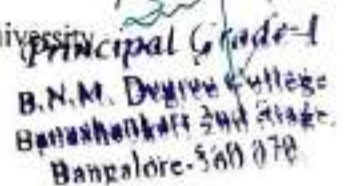 Principal Grade-I
B.N.M. Degree College
Banashankari 2nd Stage,
Bangalore-560 070